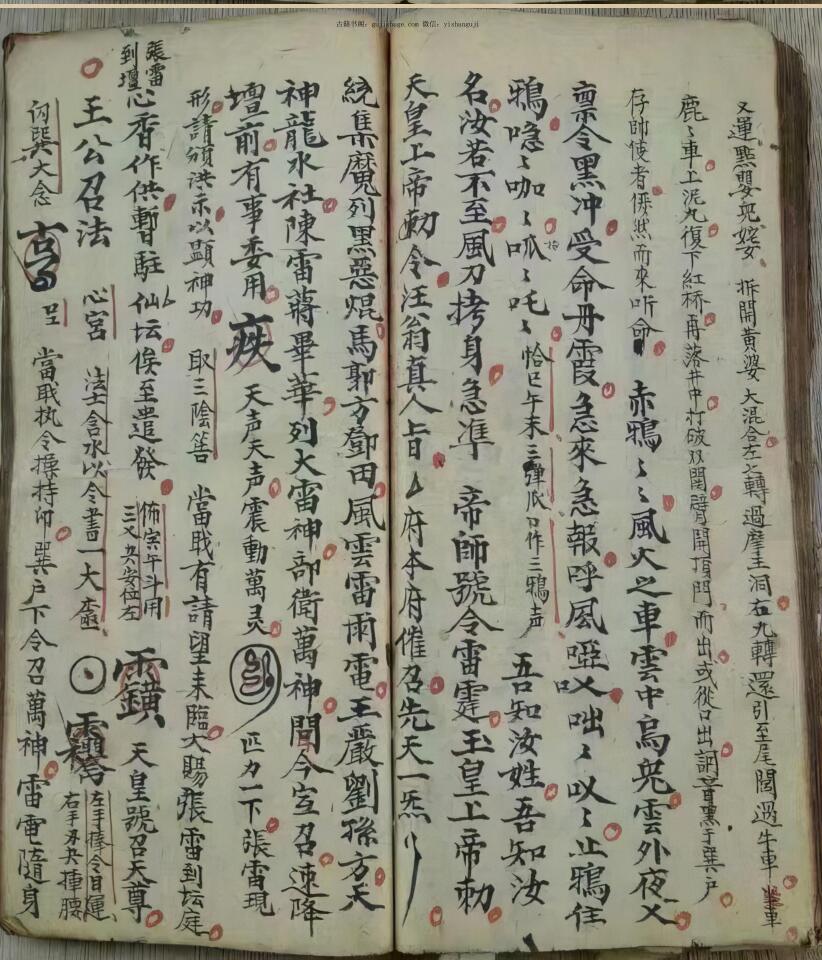 古籍书阁：gujishuge.com 微信：yishanguji
又運點嬰兒姹 拆開黃婆 大混合左之轉過摩王洞右九轉還引至尾閭過牛車
鹿〻車上泥丸復下紅桥再落井中打破双関劈開頂門而出或從口出調罡黑于巽户
存帥使者倏然而來听命 赤鴉〻〻風火之車雲中烏兔雲外夜乂
禀令黑冲受命丹霞急來急報呼風啞〻咄〻以〻止鴉住
鴉喼〻咖〻呱〻吒〻恰巳午未三彈爪口作三鴉声 吾知汝姓吾知汝
名汝若不至風刀拷身急準 帝師號令雷霆玉皇上帝勅
天皇上帝勅令汪翁真人旨 府本府催召先天一炁
統集魔列黑惡焜馬郭方鄧田風雲雷雨電王嚴劉孫方天
神龍水社陳雷蔣畢華列大雷神部衛萬神聞今宣召速降
壇前有事委用 疾 天声天声震動萬灵 匹力一下張雷現
形請頒洪示以顯神功 取三陰筶 當職有請望來臨大賜張雷到坛庭
張雷到壇心香作供暫駐仙坛俟至遣發 佈宲午斗用三乂央安位左 天皇號召天尊
王公召法 心宮 法士含水以令書一大 左手捧令目運右手丑央捶腰
向巽大念 當职执令摶持印巽户下令召萬神雷電隨身